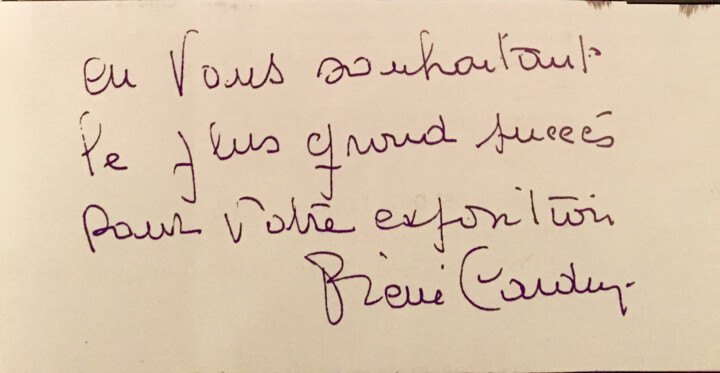 en vous souhaitant
le plus grand succès
pour votre exposition
Pierre Cardin